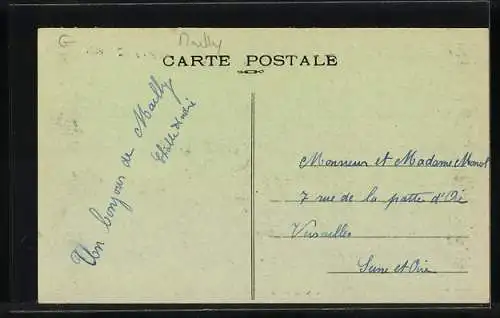 Mailly
CARTE POSTALE
Un bonjour de Mailly
Monsieur et Madame
7 rue de la patte d'Oie
Versailles
Seine et Oise